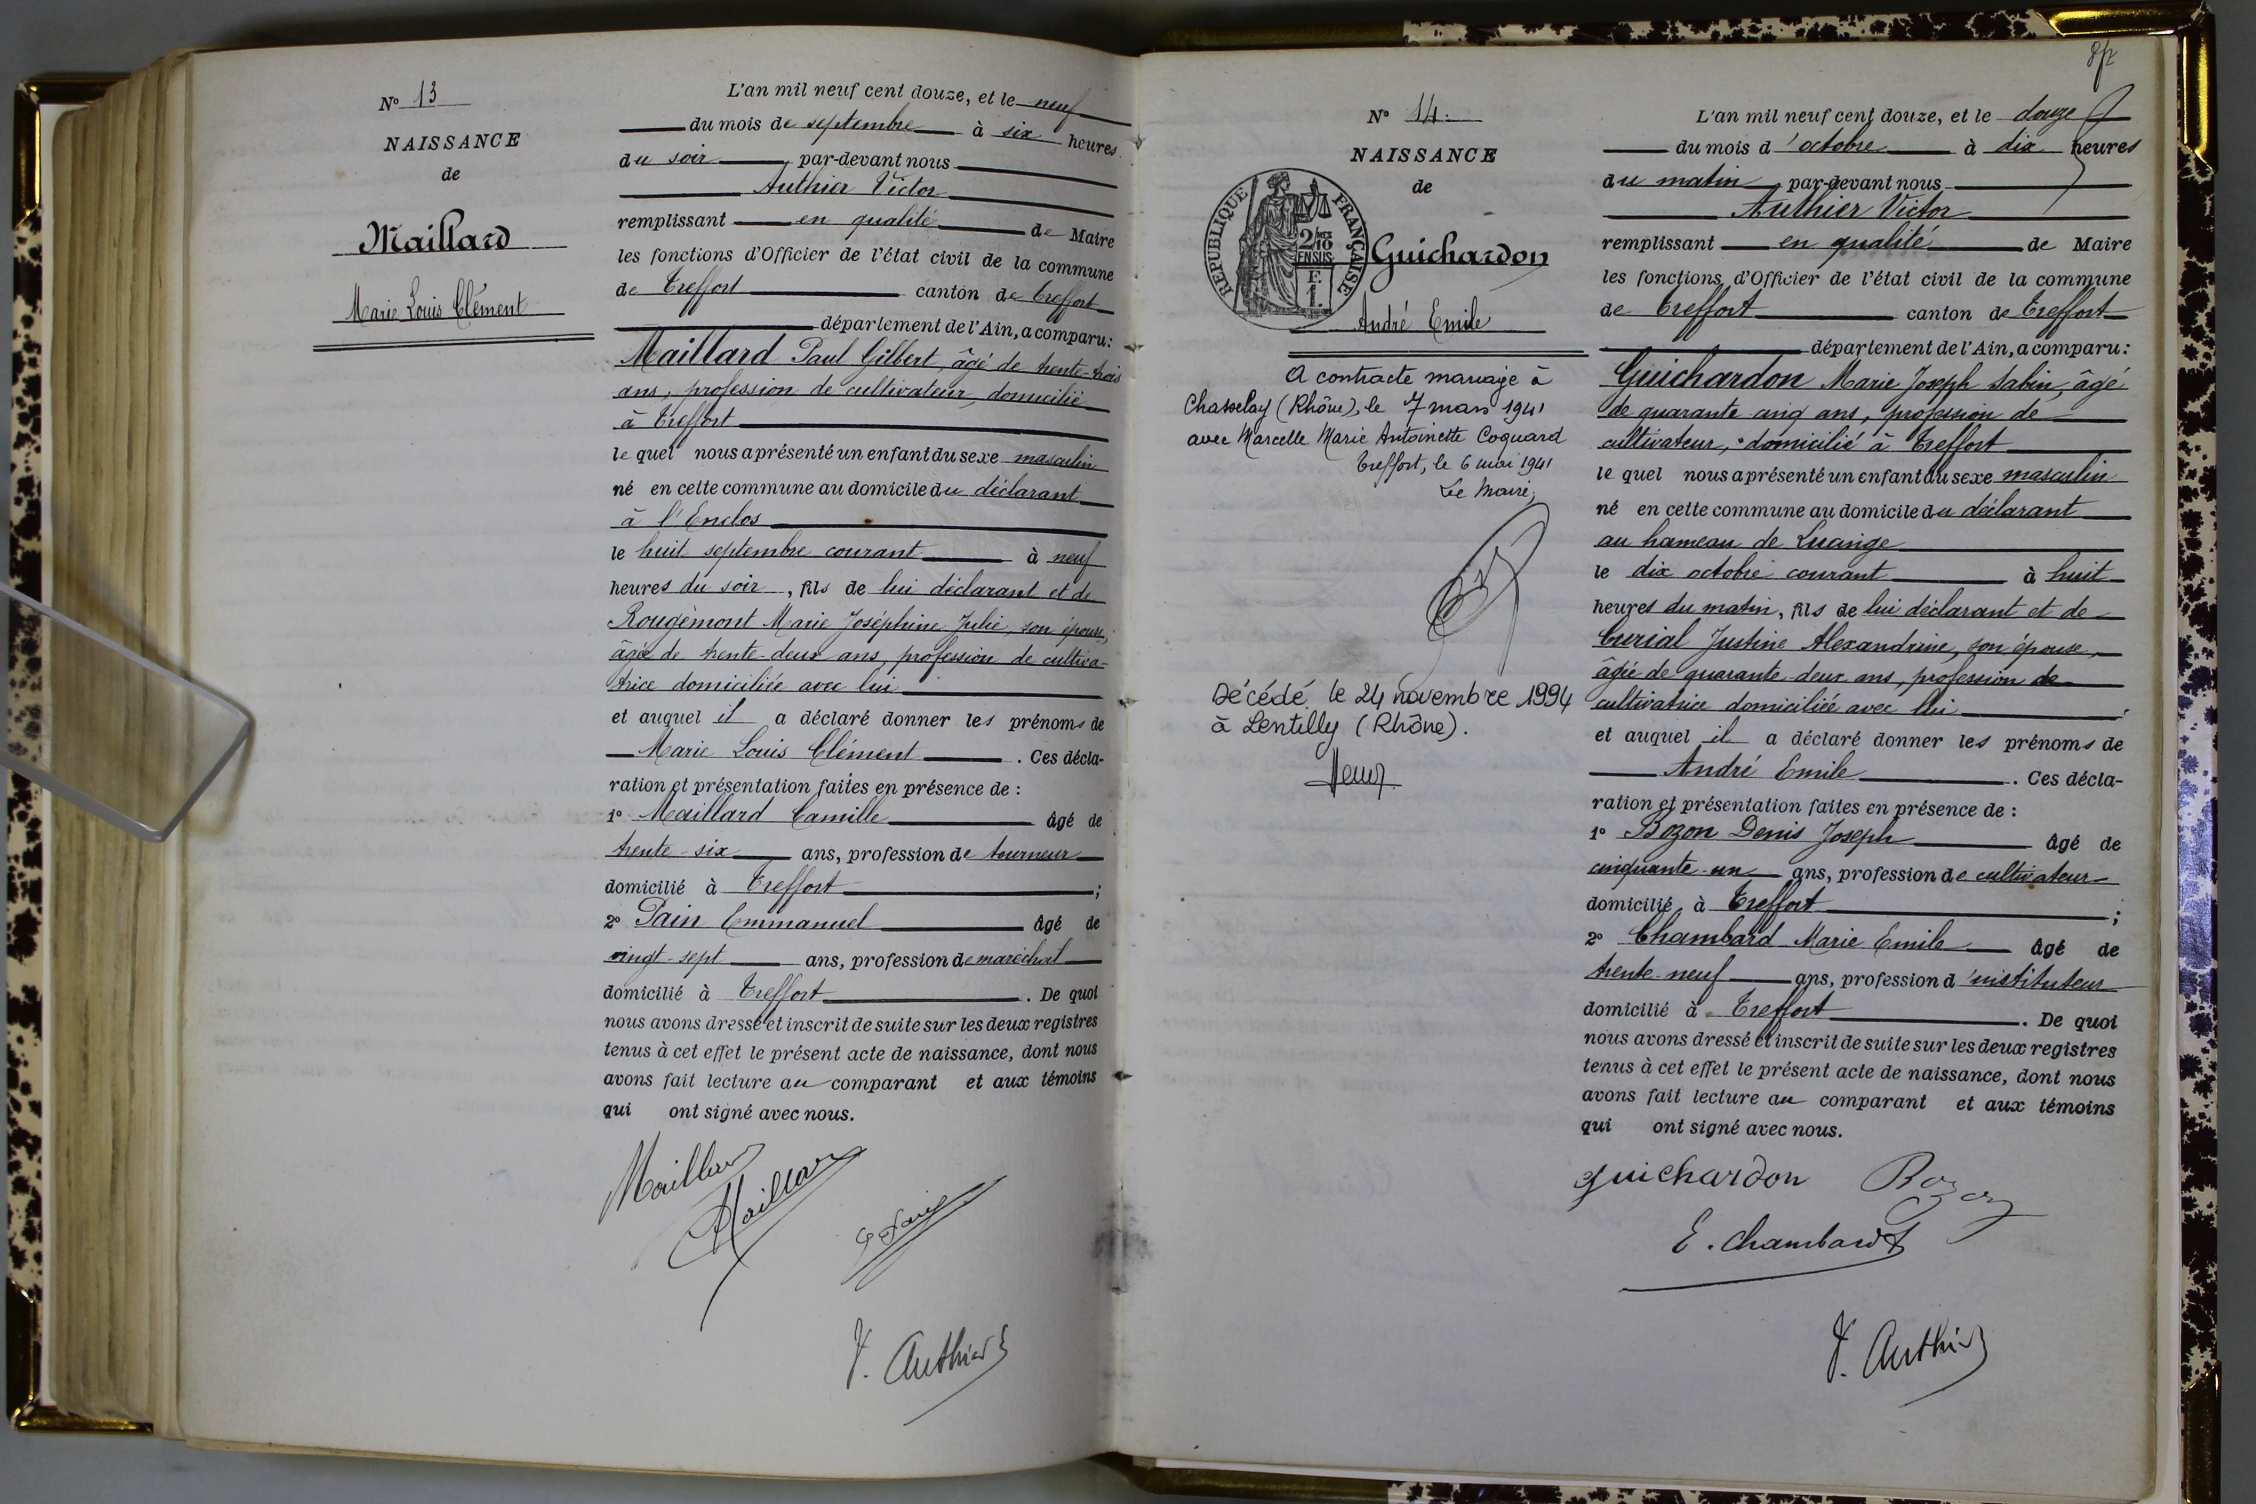 N° 13
NAISSANCE
de
Maillard
Marie Louis Clément
L'an mil neuf cent douze, et le neuf
du mois de septembre à six heures
du soir par-devant nous
Authier Victor
remplissant en qualité de Maire
les fonctions d'Officier de l'état civil de la commune
de Treffort canton de Treffort
département de l'Ain, a comparu:
Maillard Paul Gilbert, âgé de trente-trois
ans, profession de cultivateur, domicilié
à Treffort
le quel nous a présenté un enfant du sexe masculin
né en cette commune au domicile du déclarant
à l'Enclos
le huit septembre courant à neuf
heures du soir, fils de lui déclarant et de
Rougemont Marie Joséphine Julie, son épouse,
âgée de trente-deux ans, profession de cultiva-
trice domiciliée avec lui
et auquel il a déclaré donner les prénoms de
Marie Louis Clément. Ces décla-
ration et présentation faites en présence de :
1° Maillard Camille âgé de
trente-six ans, profession de tourneur
domicilié à Treffort ;
2° Pain Emmanuel âgé de
vingt-sept ans, profession de maréchal
domicilié à Treffort. De quoi
nous avons dressé et inscrit de suite sur les deux registres
tenus à cet effet le présent acte de naissance, dont nous
avons fait lecture au comparant et aux témoins
qui ont signé avec nous.
Maillard
Maillard
E Pain
V. Authier
N° 14.
NAISSANCE
de
REPUBLIQUE FRANÇAISE
2/10 EN SUS
F.
1.
Guichardon
André Emile
A contracté mariage à
Chasselay (Rhône), le 7 mars 1941
avec Marcelle Marie Antoinette Coquard
Treffort, le 6 mai 1941
Le Maire,
Décédé le 24 novembre 1994
à Lentilly (Rhône).
L'an mil neuf cent douze, et le douze
du mois d'octobre à dix heures
du matin par-devant nous
Authier Victor
remplissant en qualité de Maire
les fonctions d'Officier de l'état civil de la commune
de Treffort canton de Treffort
département de l'Ain, a comparu:
Guichardon Marie Joseph Sabin, âgé
de quarante cinq ans, profession de
cultivateur, domicilié à Treffort
le quel nous a présenté un enfant du sexe masculin
né en cette commune au domicile du déclarant
au hameau de Luange
le dix octobre courant à huit
heures du matin, fils de lui déclarant et de
Curial Justine Alexandrine, son épouse,
âgée de quarante-deux ans, profession de
cultivatrice domiciliée avec lui
et auquel il a déclaré donner les prénoms de
André Emile. Ces décla-
ration et présentation faites en présence de :
1° Bozon Denis Joseph âgé de
cinquante-un ans, profession de cultivateur
domicilié à Treffort ;
2° Chambard Marie Emile âgé de
trente-neuf ans, profession d'instituteur
domicilié à Treffort. De quoi
nous avons dressé et inscrit de suite sur les deux registres
tenus à cet effet le présent acte de naissance, dont nous
avons fait lecture au comparant et aux témoins
qui ont signé avec nous.
guichardon Bozon
E. Chambard
V. Authier